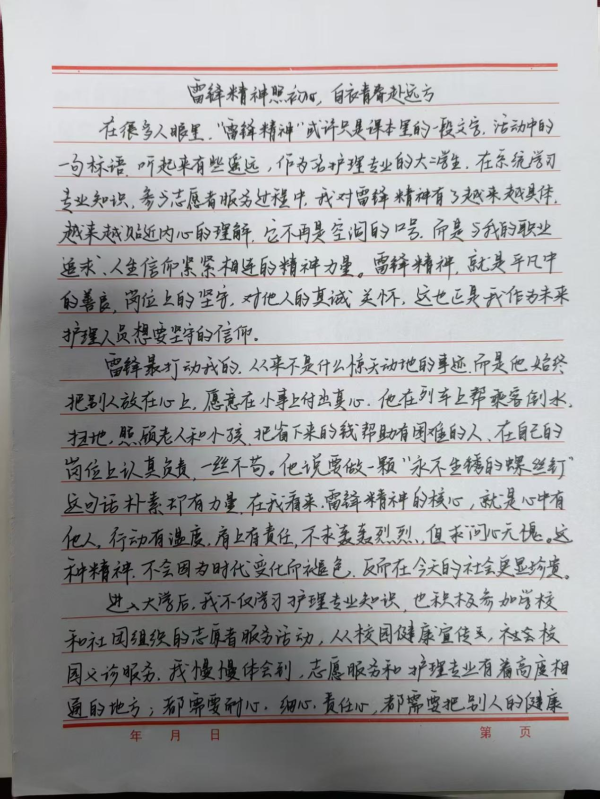 雷锋精神照初心，白衣青春赴远方
在很多人眼里，“雷锋精神”或许只是课本里的一段文字，活动中的
一句标语，听起来有些遥远，作为名护理专业的大二学生，在系统学习
专业知识、参与志愿者服务过程中，我对雷锋精神有了越来越具体，
越来越贴近内心的理解，它不再是空洞的口号，而是与我的职业
追求、人生信仰紧紧相连的精神力量。雷锋精神，就是平凡中
的善良，岗位上的坚守，对他人的真诚关怀，这也正是我作为未来
护理人员想要坚守的信仰。
雷锋最打动我的，从来不是什么惊天动地的事迹，而是他始终
把别人放在心上，愿意在小事上付出真心。他在列车上帮乘客倒水、
扫地，照顾老人和小孩，把省下来的钱帮助有困难的人、在自己的
岗位上认真负责，一丝不苟。他说要做一颗“永不生锈的螺丝钉”
这句话朴素却有力量，在我看来，雷锋精神的核心，就是心中有
他人，行动有温度，肩上有责任，不求轰轰烈烈，但求问心无愧。这
种精神，不会因为时代变化而褪色，反而在今天的社会更显珍贵。
进入大学后，我不仅学习护理专业知识，也积极参加学校
和社团组织的志愿者服务活动，从校园健康宣传，社会校
园义诊服务，我慢慢体会到，志愿服务和护理专业有着高度相
通的地方；都需要耐心、细心、责任心，都需要把别人的健康
年 月 日 第 页